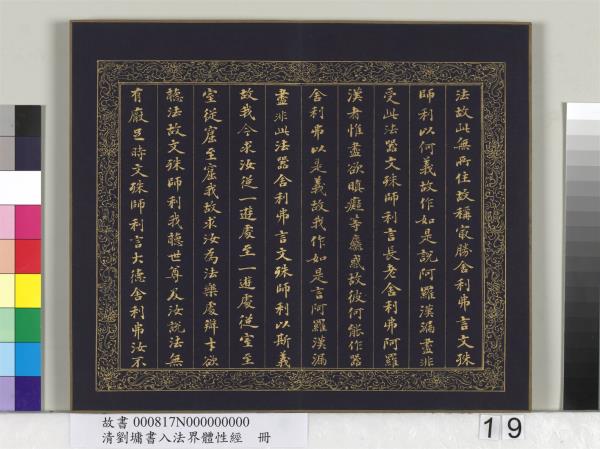 法故此無所住故稱最勝舍利弗言文殊
師利以何義故作如是說阿羅漢漏盡非
受此法器文殊師利言長老舍利弗阿羅
漢者惟盡欲瞋癡等蔽惑故彼何能作器
舍利弗以是義故我作如是言阿羅漢漏
盡非此法器舍利弗言文殊師利以斯義
故我今求汝從一遊處至一遊處從室至
室從窟至窟我故求汝為法樂處辯士欲
聽法故文殊師利我聽世尊及汝說法無
有厭足時文殊師利言大德舍利弗汝不
故書 000817N000000000
清劉墉書入法界體性經 冊
19